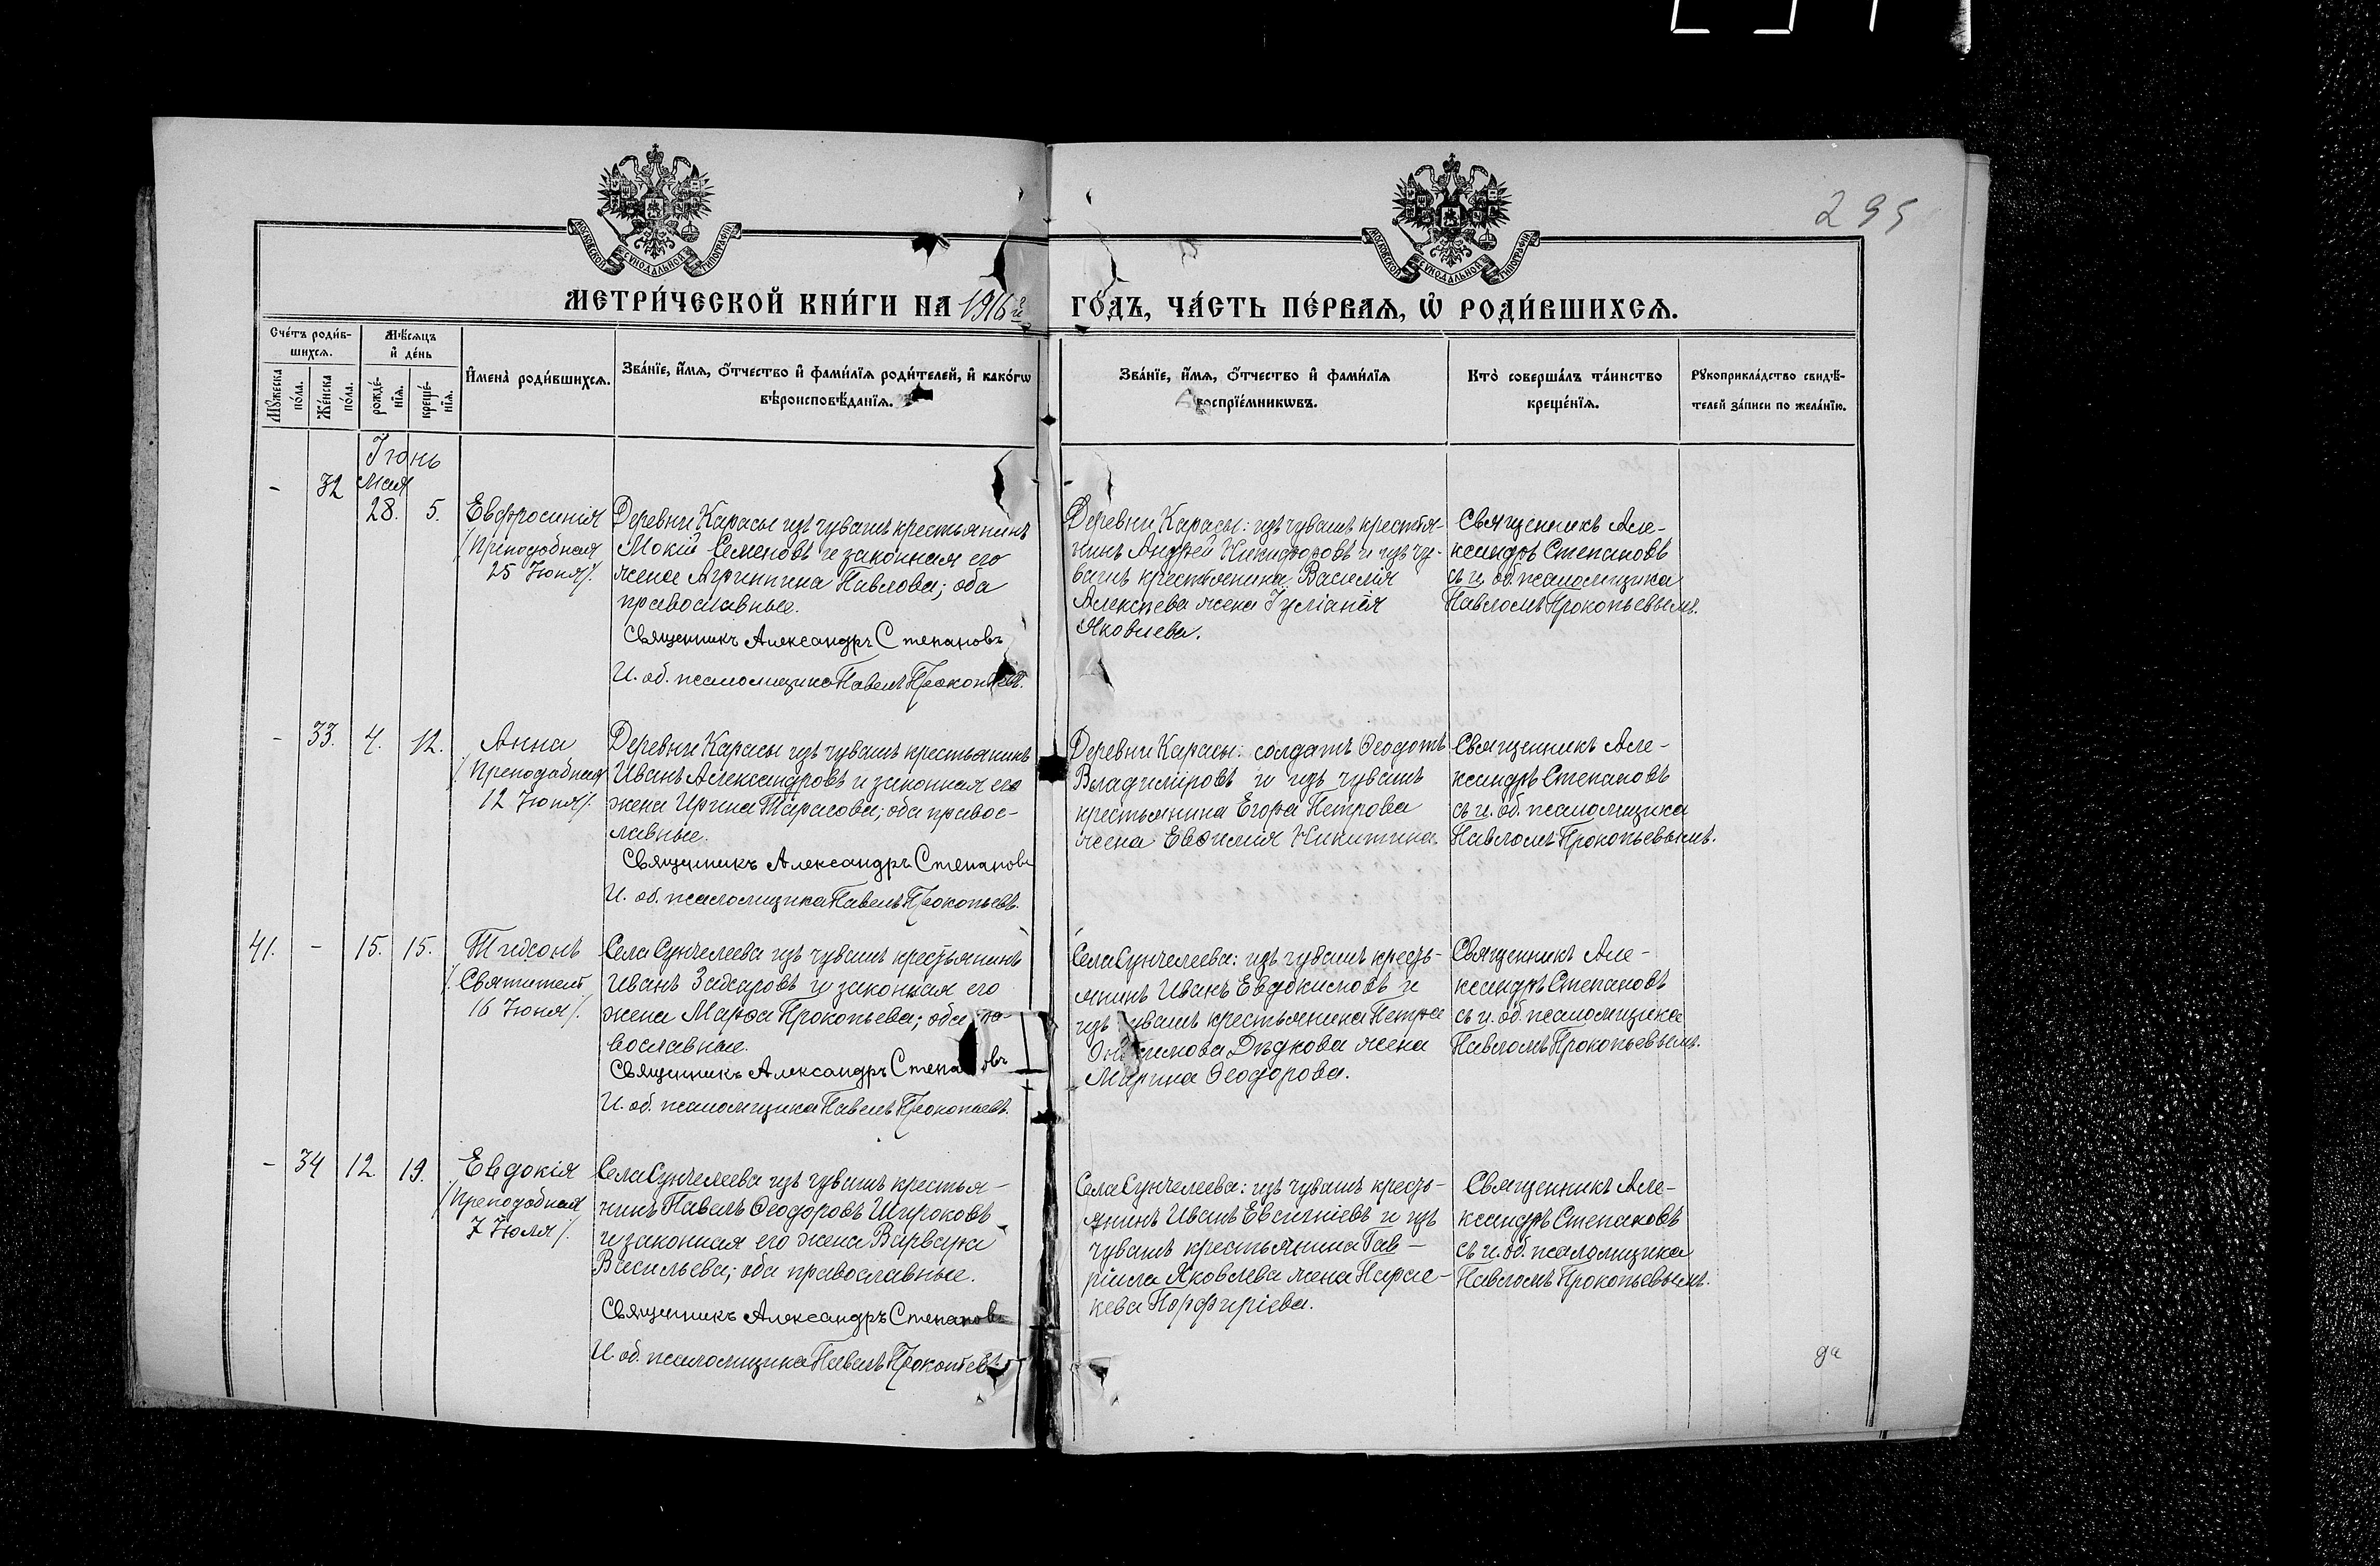 295
МОСКОВСКОЙ СѴНОДАЛЬНОЙ ТИПОГРАФІИ
МОСКОВСКОЙ СѴНОДАЛЬНОЙ ТИПОГРАФІИ
МЕТРИ́ЧЕСКОЙ КНИ́ГИ НА 1916й ГО́ДЪ, ЧА́СТЬ ПЕ́РВАѦ, Ѡ҆ РОДИ́ВШИХСѦ.
Сче́тъ роди́в-
шихсѧ.
Мѹ́жеска по́ла.
Же́нска по́ла.
Мѣ́сѧцъ
и҆ де́нь
рожде́-
нїѧ.
креще́-
нїѧ.
И҆мена̀ роди́вшихсѧ.
Зва́нїе, и҆́мѧ, ѻ҆́тчество и҆ фами́лїѧ роди́телей, и҆ како́гѡ
вѣроисповѣ́данїѧ.
Зва́нїе, и҆́мѧ, ѻ҆́тчество и҆ фами́лїѧ
воспрїе́мникѡвъ.
Кто̀ соверша́лъ та́инство
креще́нїѧ.
Рѹкоприкла́дство свидѣ́-
телей за́писи по жела́нїю.
Іюнь
- 32 Мая
28. 5.
Евфросинія
/Преподобная
25 Іюня/.
Деревни Карасы изъ чувашъ крестьянинъ
Мокій Семеновъ и законная его
жена Агриппина Павлова; оба
православные.
Священникъ Александръ Степановъ
И. об. псаломщика Павелъ Прокопьевъ.
Деревни Карасы: изъ чувашъ крестья-
нинъ Андрей Никифоровъ и изъ чу-
вашъ крестьянина Василія
Алексѣева жена Іуліанія
Яковлева.
Священникъ Але-
ксандръ Степановъ
съ и. об. псаломщика
Павломъ Прокопьевымъ.
- 33. 4. 12.
Анна
/Преподобная
12 Іюня/.
Деревни Карасы изъ чувашъ крестьянинъ
Иванъ Александровъ и законная его
жена Ирина Тарасова; оба правос-
лавные.
Священникъ Александръ Степановъ
И. об. псаломщика Павелъ Прокопьевъ.
Деревни Карасы: солдатъ Ѳеодотъ
Владиміровъ и изъ чувашъ
крестьянина Егора Петрова
жена Евѳимія Никитина.
Священникъ Але-
ксандръ Степановъ
съ и. об. псаломщика
Павломъ Прокопьевымъ.
41. - 15. 15.
Тихонъ
/Святитель
16 Іюня/.
Села Сунчелеева изъ чувашъ крестьянинъ
Иванъ Захаровъ и законная его
жена Марѳа Прокопьева; оба
вославные.
Священникъ Александръ Степановъ
И. об. псаломщика Павелъ Прокопьевъ.
Села Сунчелеева: изъ чувашъ кресть-
янинъ Иванъ Евдокимовъ и
изъ чувашъ крестьянина Петра
Дѣдкова жена
Марина Ѳеодорова.
Священникъ Але-
ксандръ Степановъ
съ и. об. псаломщика
Павломъ Прокопьевымъ.
- 34 12 19.
Евдокія
/Преподобная
7 Іюля/.
Села Сунчелеева изъ чувашъ крестья-
нинъ Павелъ Ѳеодоровъ Широковъ
и законная его жена Варвара
Васильева; оба православные.
Священникъ Александръ Степановъ
И. об. псаломщика Павелъ Прокопьевъ
Села Сунчелеева: изъ чувашъ кресть-
янинъ Иванъ Евсигніевъ и изъ
чувашъ крестьянина Гав-
ріила Яковлева жена Парас-
кева Порфиріева.
Священникъ Але-
ксандръ Степановъ
съ и. об. псаломщика
Павломъ Прокопьевымъ.
да